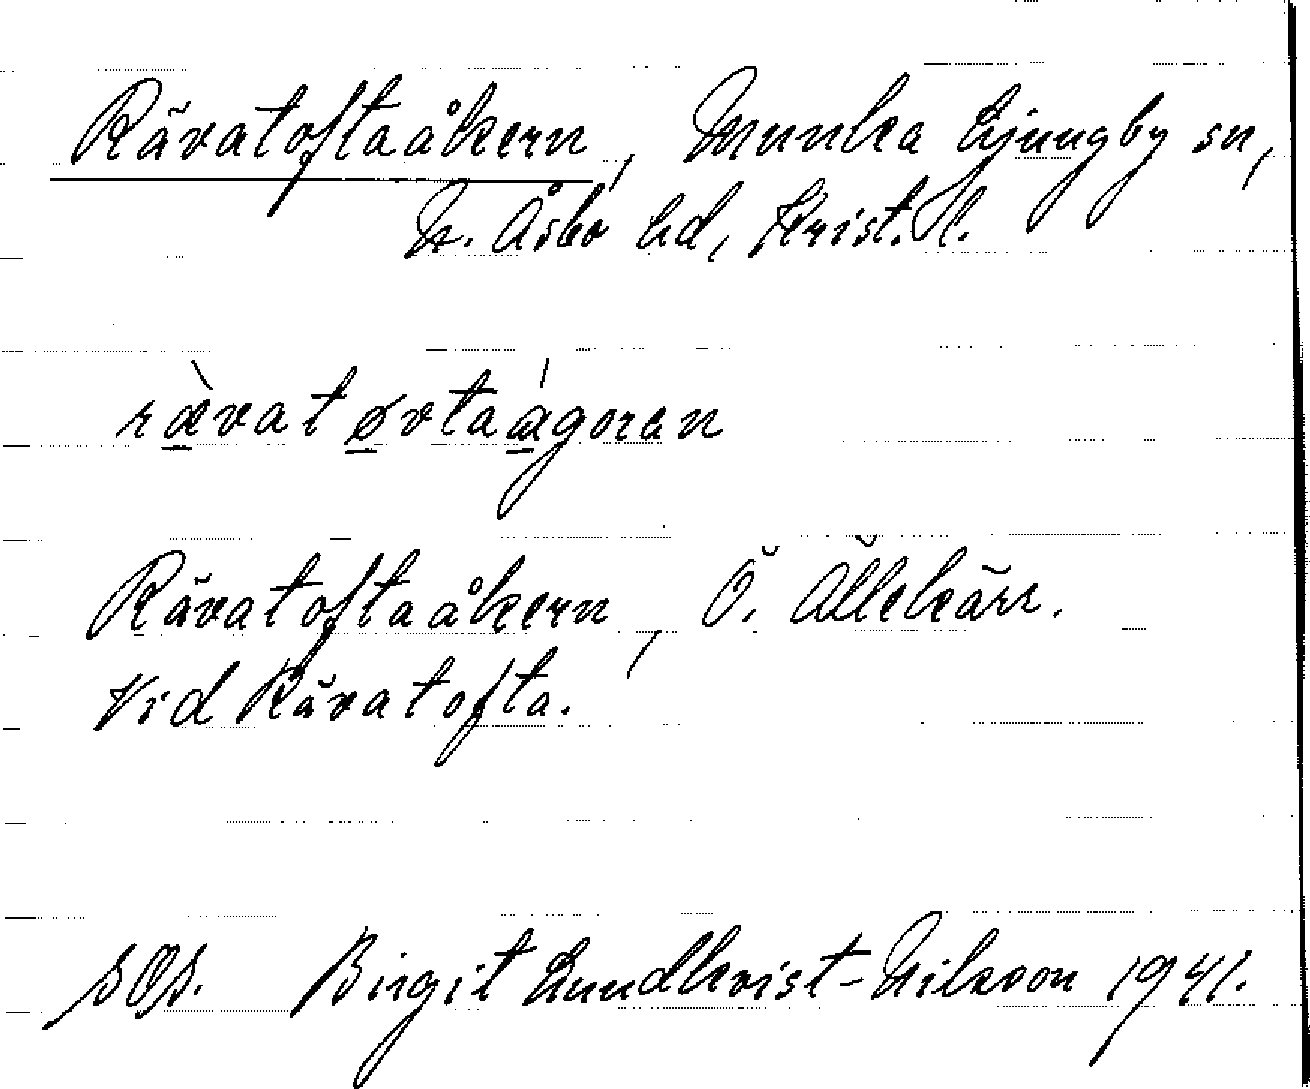 Rävatoftaåkern, Munka Ljungby sn,
N. Åsbo hd, Krist. l.
ræ̀vatøvtaágoran
Rävatoftaåkern, Ö. Ällekärr.
Vid Rävatofta.
sOs. Birgit Lundkvist-Nilsson 1941.